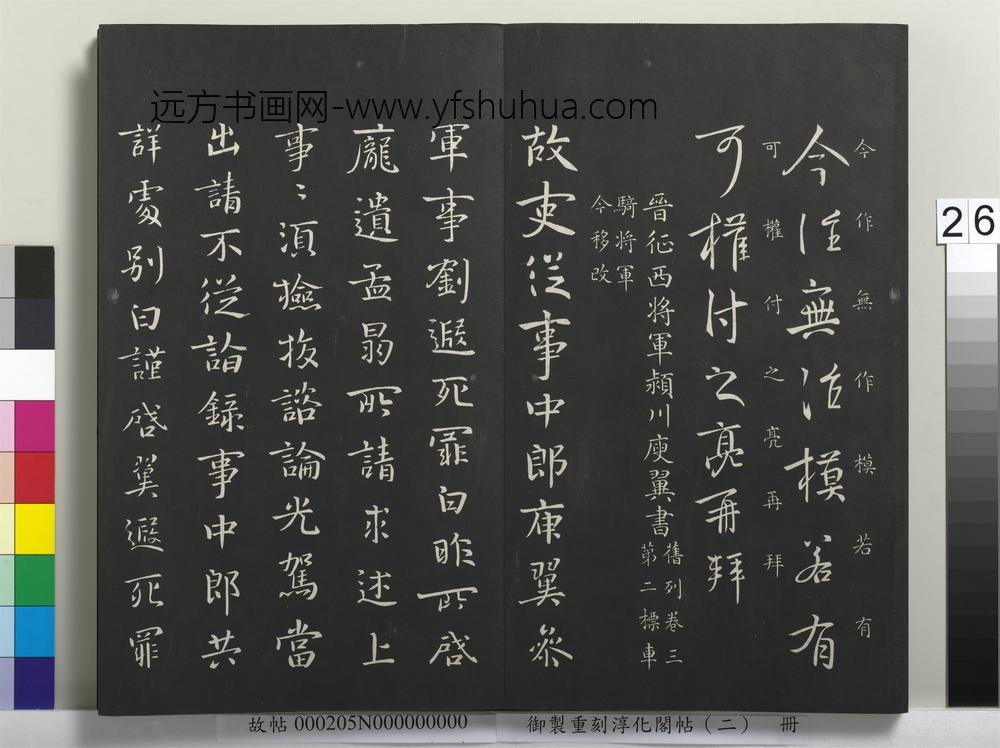 远方书画网-www.yfshuhua.com
今作無作模若有
今往無作模若有
可權付之亮再拜
可權付之亮再拜
晉征西將軍潁川庾翼書
舊列卷三
第二標車
騎將軍
今移改
故吏從事中郎庾翼參
軍事劉遐死罪白昨所啓
龐遺孟昺所請求述上
事〻須檢校諮論光駕當
出請不從詣錄事中郎共
詳處別白謹啓翼遐死罪
26
故帖 000205N000000000
御製重刻淳化閣帖(二) 冊